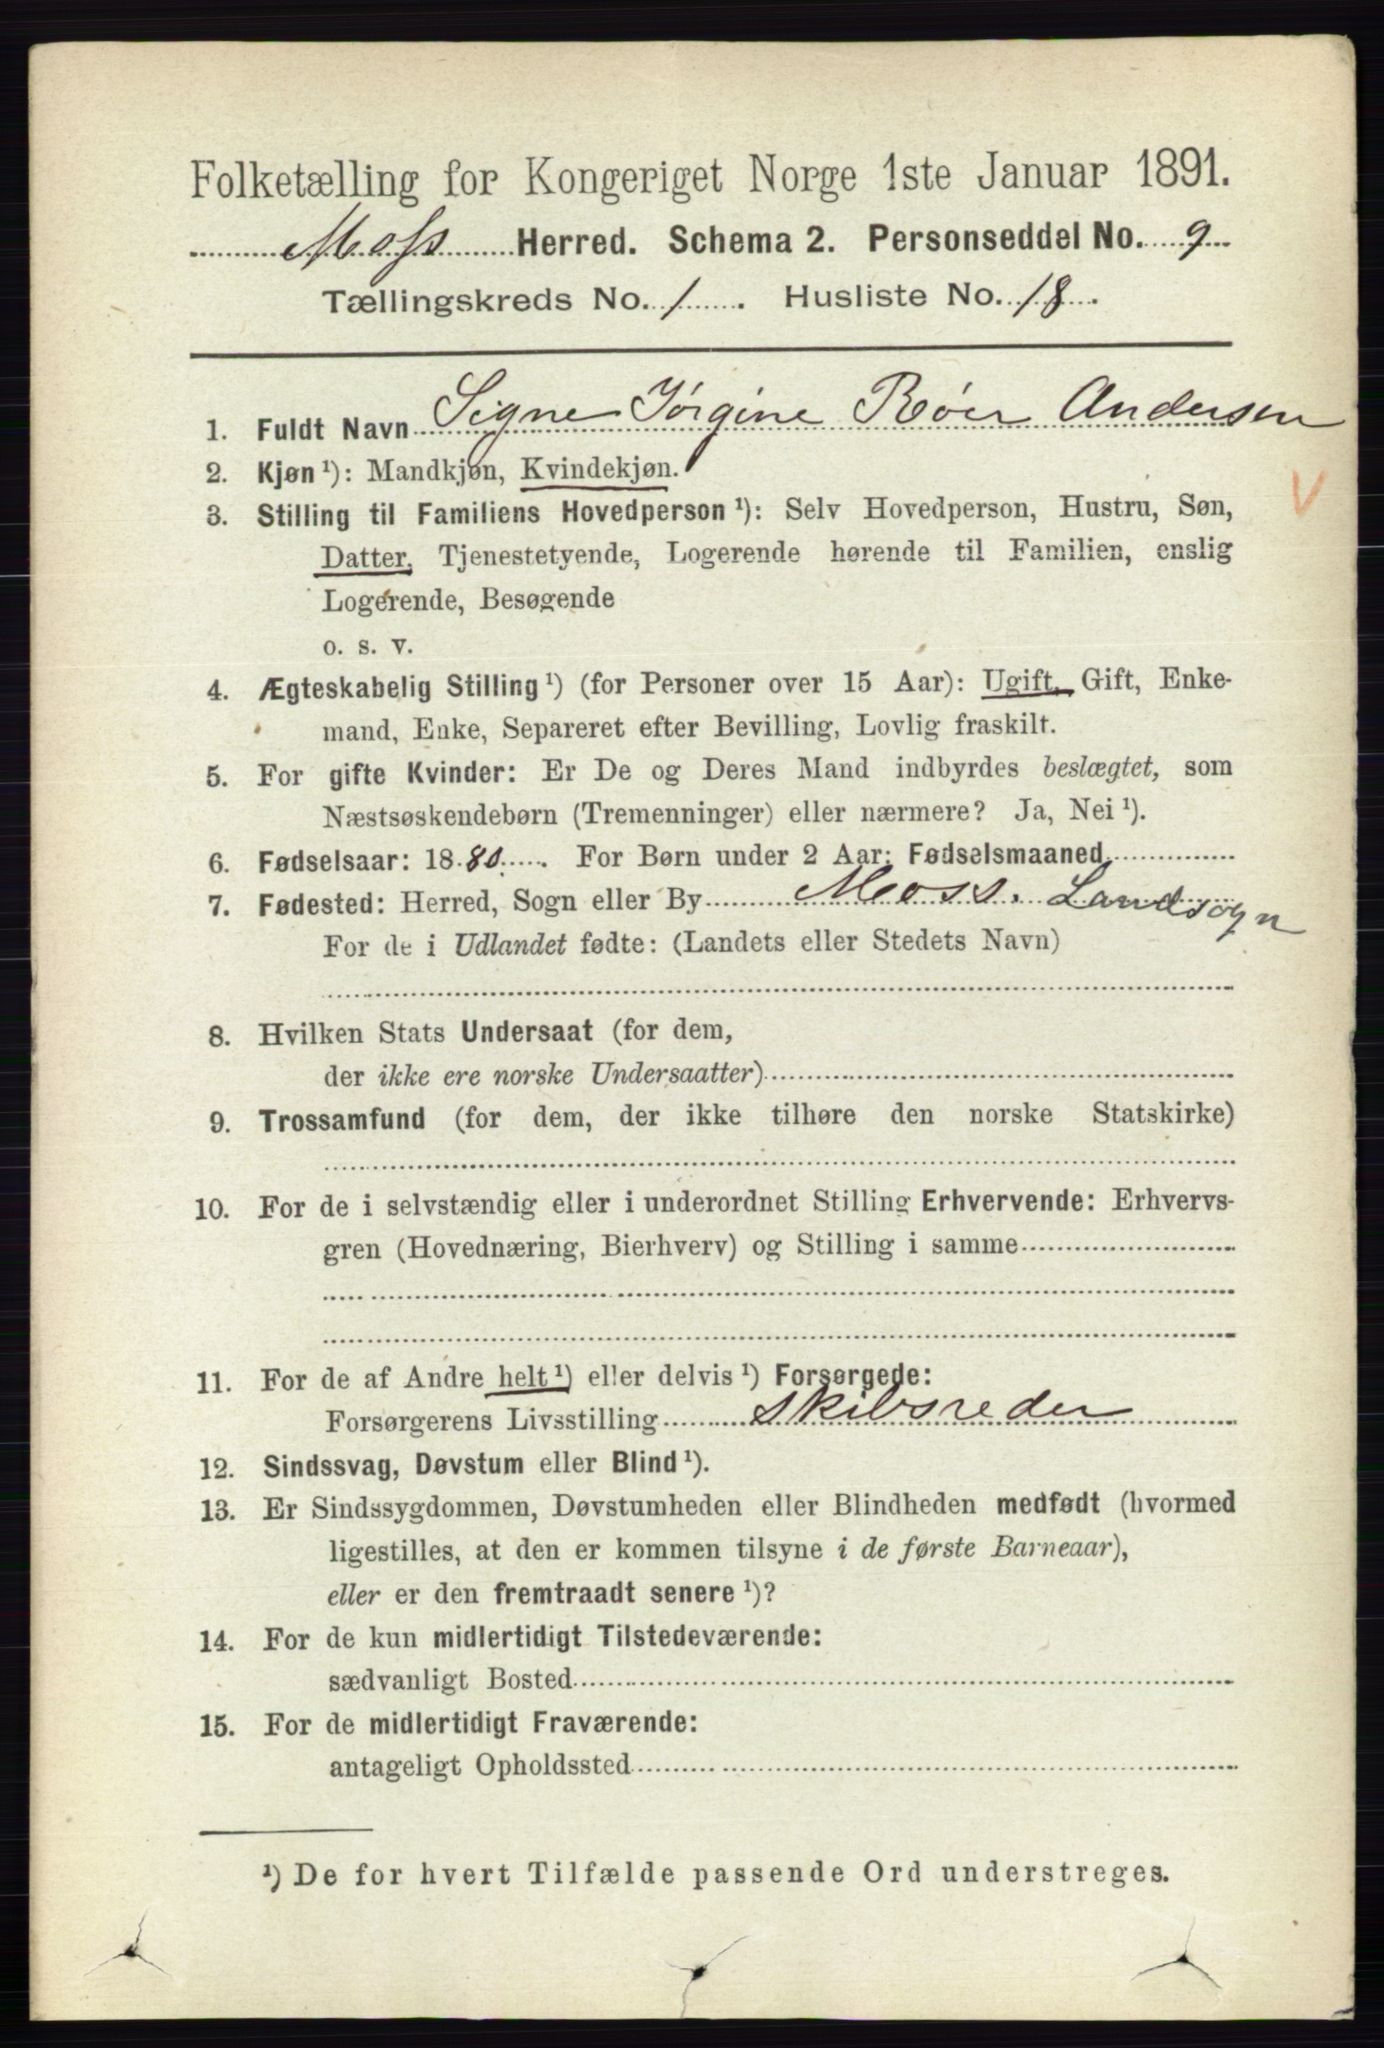 Folketælling for Kongeriget Norge 1ste Januar 1891.
Moss Herred. Schema 2. Personseddel No. 9
Tællingskreds No. 1. Husliste No. 18.
1. Fuldt Navn Signe Jørgine Røer Andersen
2. Kjøn ¹): Mandkjøn, Kvindekjøn.
V
3. Stilling til Familiens Hovedperson ¹): Selv Hovedperson, Hustru, Søn,
Datter, Tjenestetyende, Logerende hørende til Familien, enslig
Logerende, Besøgende
o. s. v.
4. Ægteskabelig Stilling ¹) (for Personer over 15 Aar): Ugift, Gift, Enke-
mand, Enke, Separeret efter Bevilling, Lovlig fraskilt.
5. For gifte Kvinder: Er De og Deres Mand indbyrdes beslægtet, som
Næstsøskendebørn (Tremenninger) eller nærmere? Ja, Nei ¹).
6. Fødselsaar: 1880. For Børn under 2 Aar: Fødselsmaaned
7. Fødested: Herred, Sogn eller By Moss. Landsogn
For de i Udlandet fødte: (Landets eller Stedets Navn)
8. Hvilken Stats Undersaat (for dem,
der ikke ere norske Undersaatter)
9. Trossamfund (for dem, der ikke tilhøre den norske Statskirke)
10. For de i selvstændig eller i underordnet Stilling Erhvervende: Erhvervs-
gren (Hovednæring, Bierhverv) og Stilling i samme
11. For de af Andre helt ¹) eller delvis ¹) Forsørgede:
Forsørgerens Livsstilling Skibsreder
12. Sindssvag, Døvstum eller Blind ¹).
13. Er Sindssygdommen, Døvstumheden eller Blindheden medfødt (hvormed
ligestilles, at den er kommen tilsyne i de første Barneaar),
eller er den fremtraadt senere ¹)?
14. For de kun midlertidigt Tilstedeværende:
sædvanligt Bosted
15. For de midlertidigt Fraværende:
antageligt Opholdssted
¹) De for hvert Tilfælde passende Ord understreges.